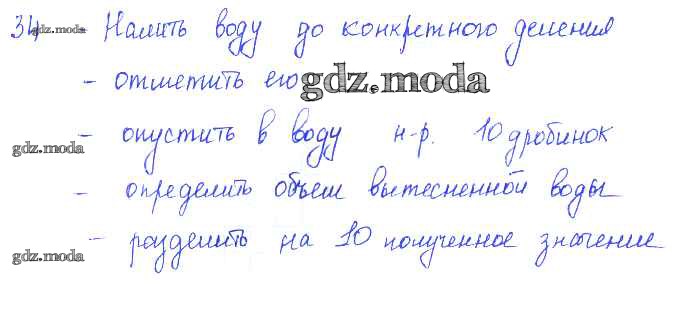 34 gdz.moda - Налить воду до конкретного деления
- отметить его gdz.moda
- опустить в воду н-р. 10 дробинок
gdz.moda
- определить объем вытесненной воды
- разделить на 10 полученное значение
gdz.moda